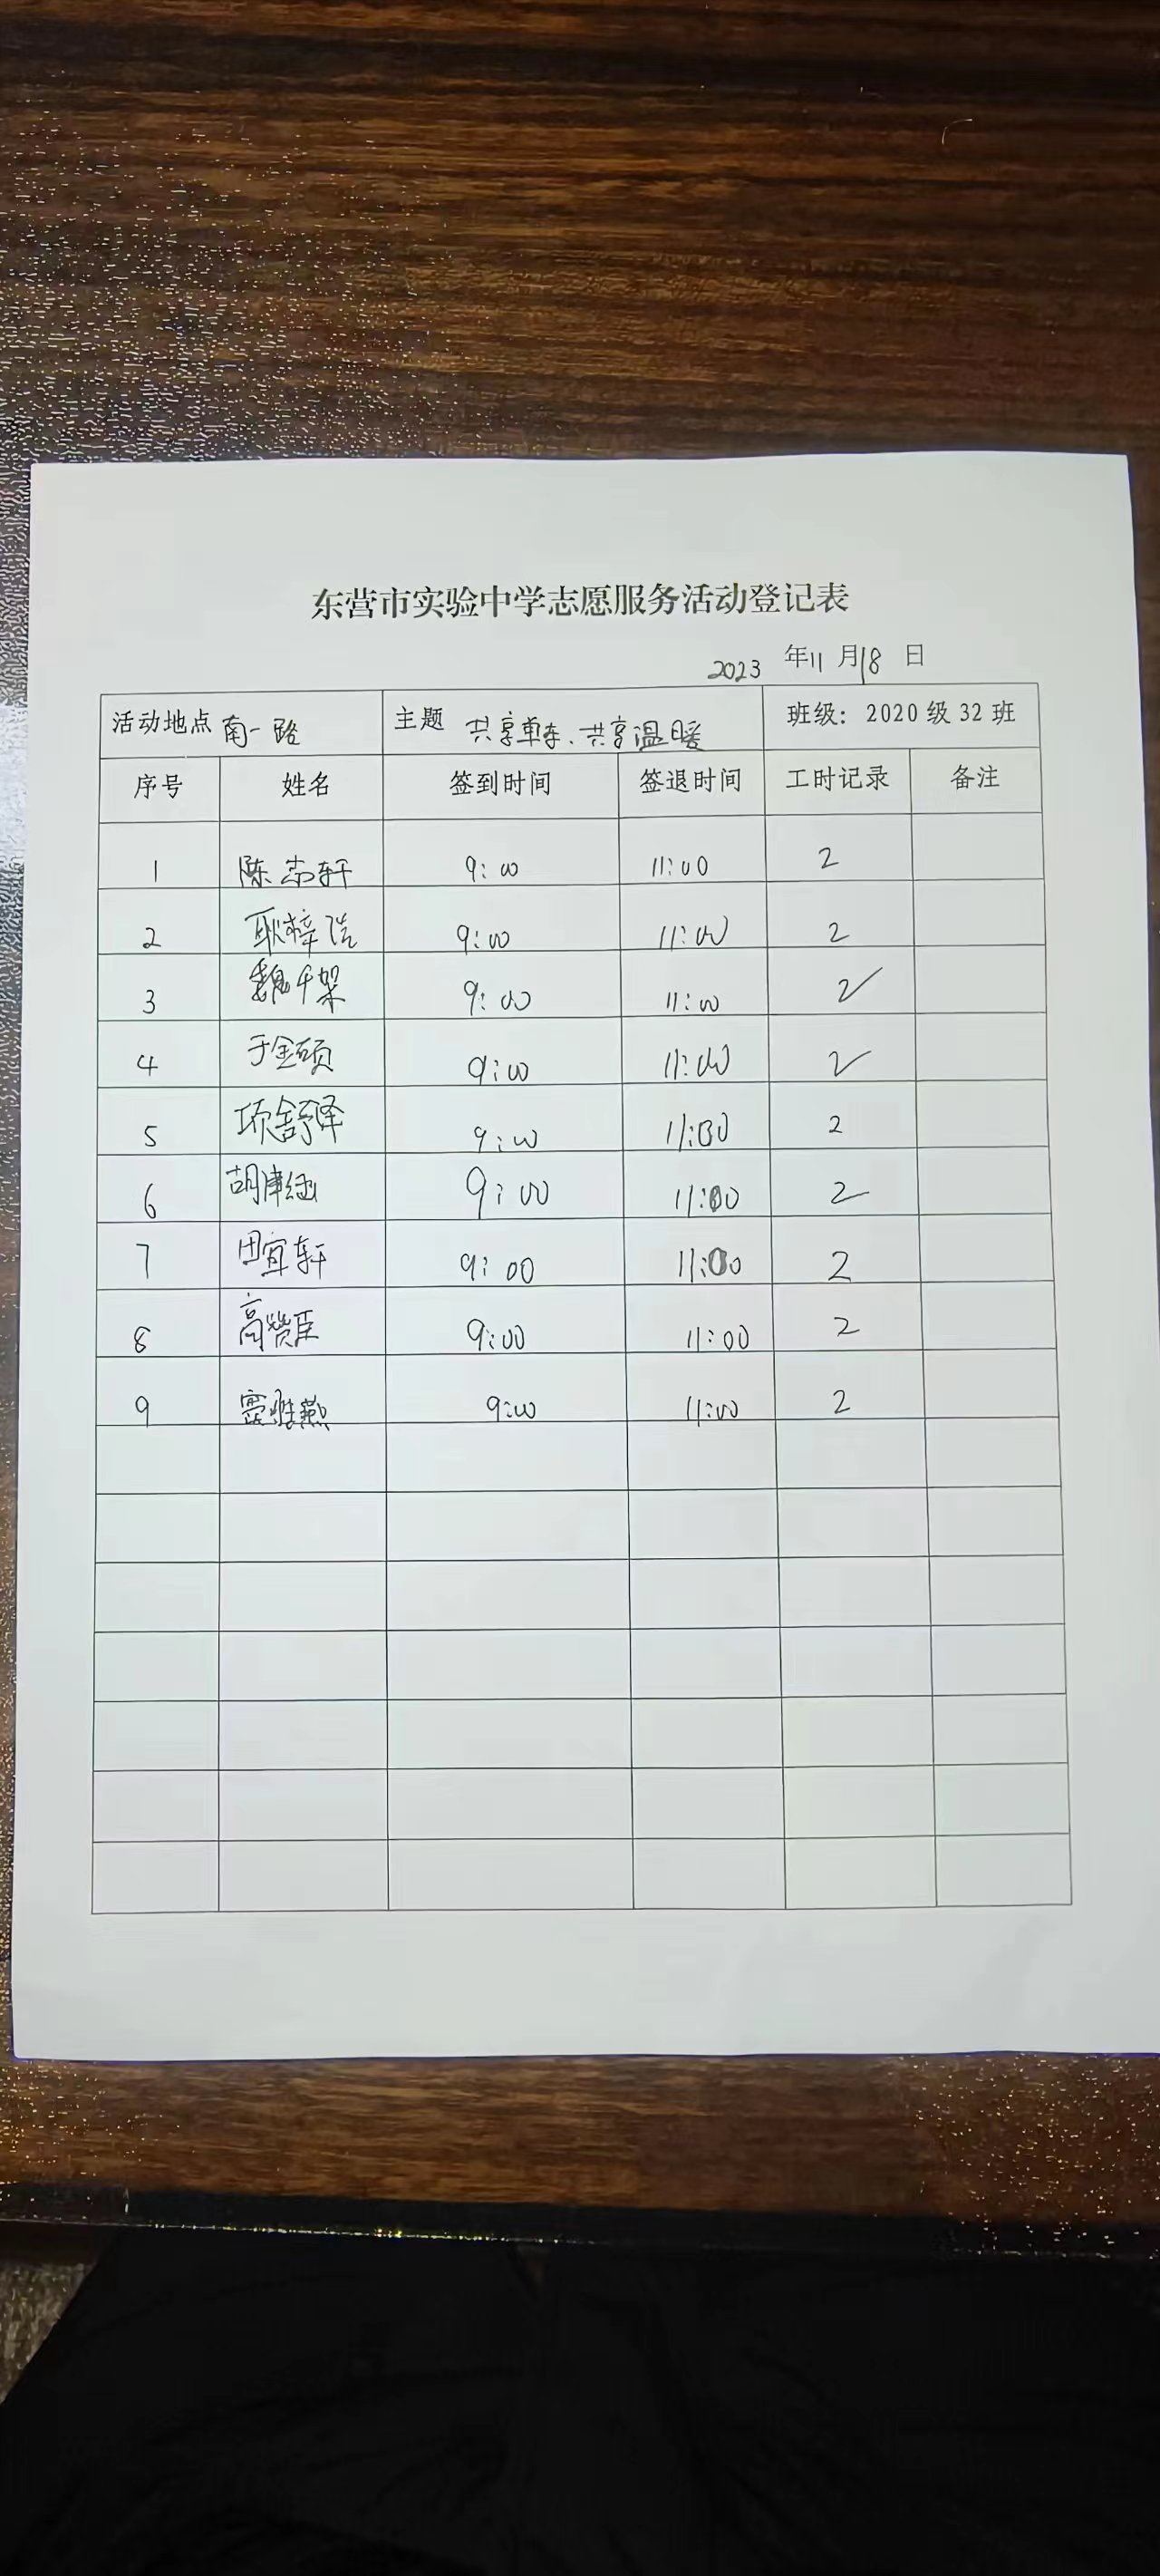 东营市实验中学志愿服务活动登记表
2023 年 11 月 18 日
活动地点 南一路 主题 共享单车、共享温暖 班级：2020级32班
序号 姓名 签到时间 签退时间 工时记录 备注
1 陈志轩 9:00 11:00 2
2 耿梓浩 9:00 11:00 2
3 魏千架 9:00 11:00 2
4 于金硕 9:00 11:00 2
5 项舒泽 9:00 11:00 2
6 胡津涵 9:00 11:00 2
7 田宜轩 9:00 11:00 2
8 高赞臣 9:00 11:00 2
9 9:00 11:00 2